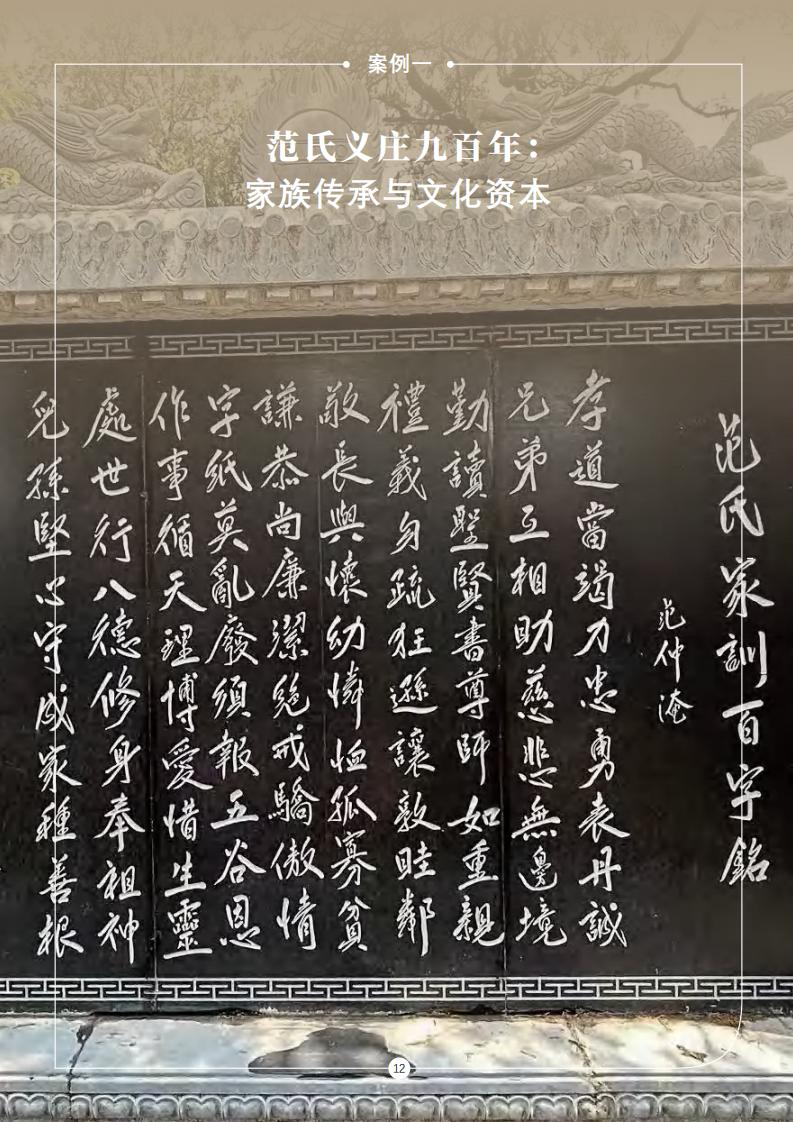 案例一
范氏义庄九百年：
家族传承与文化资本
范氏家訓百字銘
范仲淹
孝道當竭力忠勇表丹誠
兄弟互相助慈悲無邊境
勤讀聖賢書尊師如重親
禮義勿疏狂遜讓敦睦鄰
敬長與懷幼憐恤孤寡貧
謙恭尚廉潔絕戒驕傲情
字紙莫亂廢須報五谷恩
作事循天理博愛惜生靈
處世行八德修身奉祖神
兒孫堅心守成家種善根
12